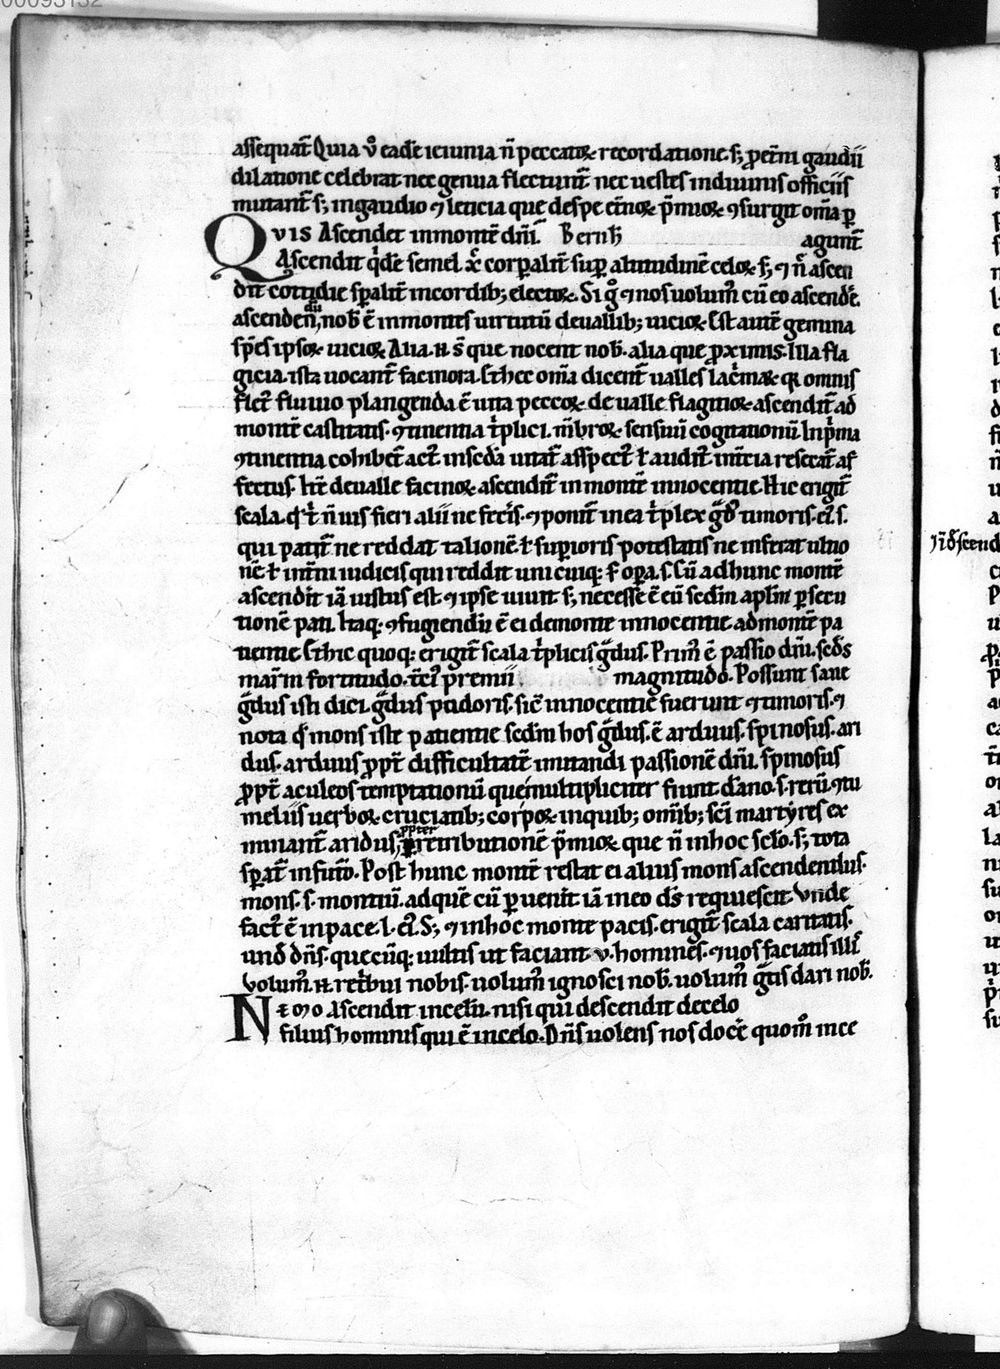 00093132
assequat̄ Quia v̊ eadē ieiunia n̄ peccatoꝝ recordatione ſꝫ ꝓet̄ni gaudii
dilatione celebrat nec genua flectunt̄ nec uestes in diuinis officiis
mutant̄ ſꝫ in gaudio ⁊ leticia que de spe et̄noꝝ p̄mioꝝ ꝯsurgit om̄a ꝑ
agunt̄
QVIS Ascendet in montē dn̄i. Bernh̄
Ascendit q̇dē semel xp̄c corꝑalit̄ suꝑ altitudinē celoꝝ ſꝫ ⁊ n̄ ascen
dit cottidie sp̄alit̄ in cordibꝫ electoꝝ. Si g̊ ⁊ nos uolum᷒ cū eo ascendē.
ascendendū nob̄ ē in montes uirtutū de uallibꝫ uicioꝝ Est autē gemina
sp̄es ipsoꝝ uicioꝝ Alia .n. s̄ que nocent nob̄. alia que ꝓximis. Illa fla
gicia. ista uocant̄ facinora. Et hec om̄a dicent̄ ualles lac̄maꝝ qꝛ omnis
flet᷒ fluuio plangenda ē uita peccoꝝ. de ualle flagitioꝝ ascendit̄ ad
montē castitatis. ꝯtinentia t̄plici. m̄broꝝ. sensuū cogitationū. In p̄ma
ꝯtinentia cohibet̄ act᷒ in sc̄da uitat̄ aspect᷒ ł audit᷒ in t̄cia resecat̄ af
fectus. It̄ de ualle facinoꝝ ascendit̄ in montē innocentie. Hic erigit̄
scala. q̇ t̄ n̄ uis fieri alii ne fec̄is. ⁊ ponit̄ in ea t̄plex g̊d᷒ timoris. el̄. s.
qui patit̄ ne reddat talionē ł suꝑioris potestatis ne inferat ultio
nē ł int̄ni iudicis qui reddit unicuiqꝫ ſ̄ oꝑa. s. Cū ad hunc montē
ascendit̄ iā iustus est ⁊ ipse uiuit ſꝫ necesse ē eū sc̄dm̄ aplm̄ ꝑsecu
tionē pati. Itaqꝫ ꝯfugiendū ē ei de monte innocentie ad montē pa
tientie. Et hic quoqꝫ erigit̄ scala t̄plicis g̊dus. Prim᷒ ē passio dn̄i. sc̄ds
mar̄m fortitudo. t̄ci᷒ premii magnitudo. Possunt sane
g̊dus isti dici. g̊dus pudoris. sic̄ innocentie fuerunt ⁊ timoris. ⁊
nota q̇ mons iste patientie sc̄dm̄ hos g̊dus. ē arduus. spinosus. ari
dus. arduus ꝓpt̄ difficultatē imitandi passionē dn̄i. spinosus
ꝓpt̄ aculeos temptationū que multipliciter fiunt dāno. s. rerū. ꝯtu
meliis uerboꝝ cruciatibꝫ corpoꝝ in quibꝫ om̄ibꝫ sc̄i martyres ex
aminant̄ aridus, ꝓpter retributionē p̄mioꝝ que n̄ in hoc sc̄lo. ſꝫ tota
sꝑat̄ in fut̊o. Post hunc montē restat ei alius mons ascendendus.
mons. s. montiū. ad quē cū ꝑuenit iā in eo ds̄ requiescit. Vnde
fact᷒ ē in pace. l. ei᷒. Sꝫ ⁊ in hoc monte pacis. erigit̄ scala caritatis.
und̄ dn̄s. quecūqꝫ uultis ut faciant v. homines. ⁊ uos faciatis illis
Volum᷒ .n. ret̄bui nobis. uolum᷒ ignosci nob̄. uolum᷒ g̊tis dari nob̄.
NEMO Ascendit in celū. nisi qui descendit de celo
filius hominis qui ē in celo. Dn̄s uolens nos docē quom᷒ in ce